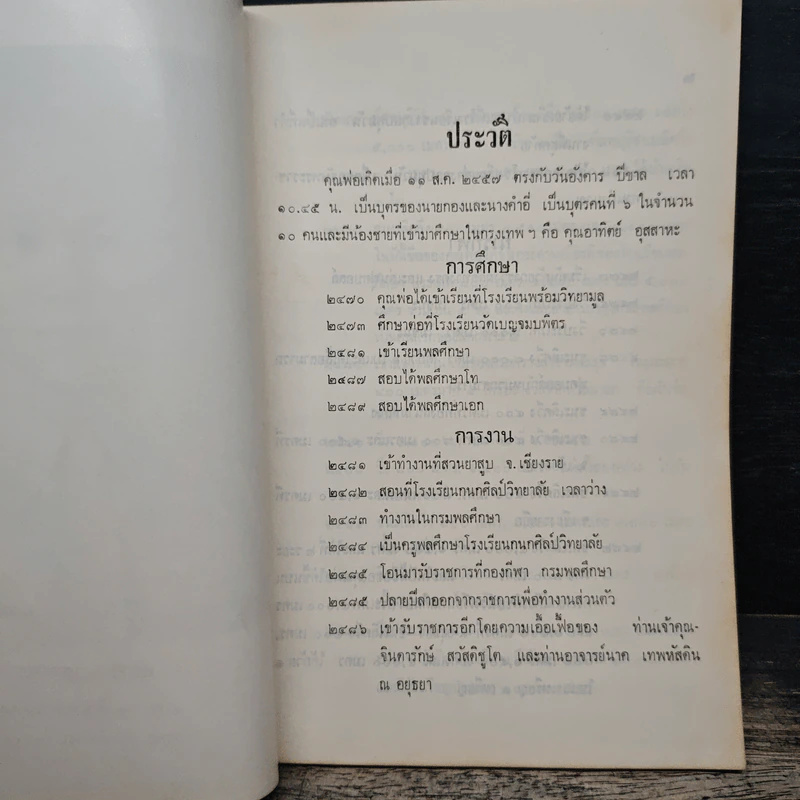 ประวัติ
คุณพ่อเกิดเมื่อ ๑๑ ส.ค. ๒๔๕๗ ตรงกับวันอังคาร ปีขาล เวลา
๑๐.๔๕ น. เป็นบุตรของนายกองและนางคำอี่ เป็นบุตรคนที่ ๖ ในจำนวน
๑๐ คนและมีน้องชายที่เข้ามาศึกษาในกรุงเทพ ฯ คือ คุณอาทิตย์ อุสสาหะ
การศึกษา
๒๔๗๐ คุณพ่อได้เข้าเรียนที่โรงเรียนพร้อมวิทยามูล
๒๔๗๓ ศึกษาต่อที่โรงเรียนวัดเบญจมบพิตร
๒๔๘๑ เข้าเรียนพลศึกษา
๒๔๘๗ สอบได้พลศึกษาโท
๒๔๘๙ สอบได้พลศึกษาเอก
การงาน
๒๔๘๑ เข้าทำงานที่สวนยาสูบ จ.เชียงราย
๒๔๘๒ สอนที่โรงเรียนกนกศิลป์วิทยาลัย เวลาว่าง
๒๔๘๓ ทำงานในกรมพลศึกษา
๒๔๘๔ เป็นครูพลศึกษาโรงเรียนกนกศิลป์วิทยาลัย
๒๔๘๕ โอนมารับราชการที่กองกีฬา กรมพลศึกษา
๒๔๘๕ ปลายปีลาออกจากราชการเพื่อทำงานส่วนตัว
๒๔๘๖ เข้ารับราชการอีกโดยความเอื้อเฟื้อของ ท่านเจ้าคุณ-
จินดารักษ์ สวัสดิชูโต และท่านอาจารย์นาค เทพหัสดิน
ณ อยุธยา